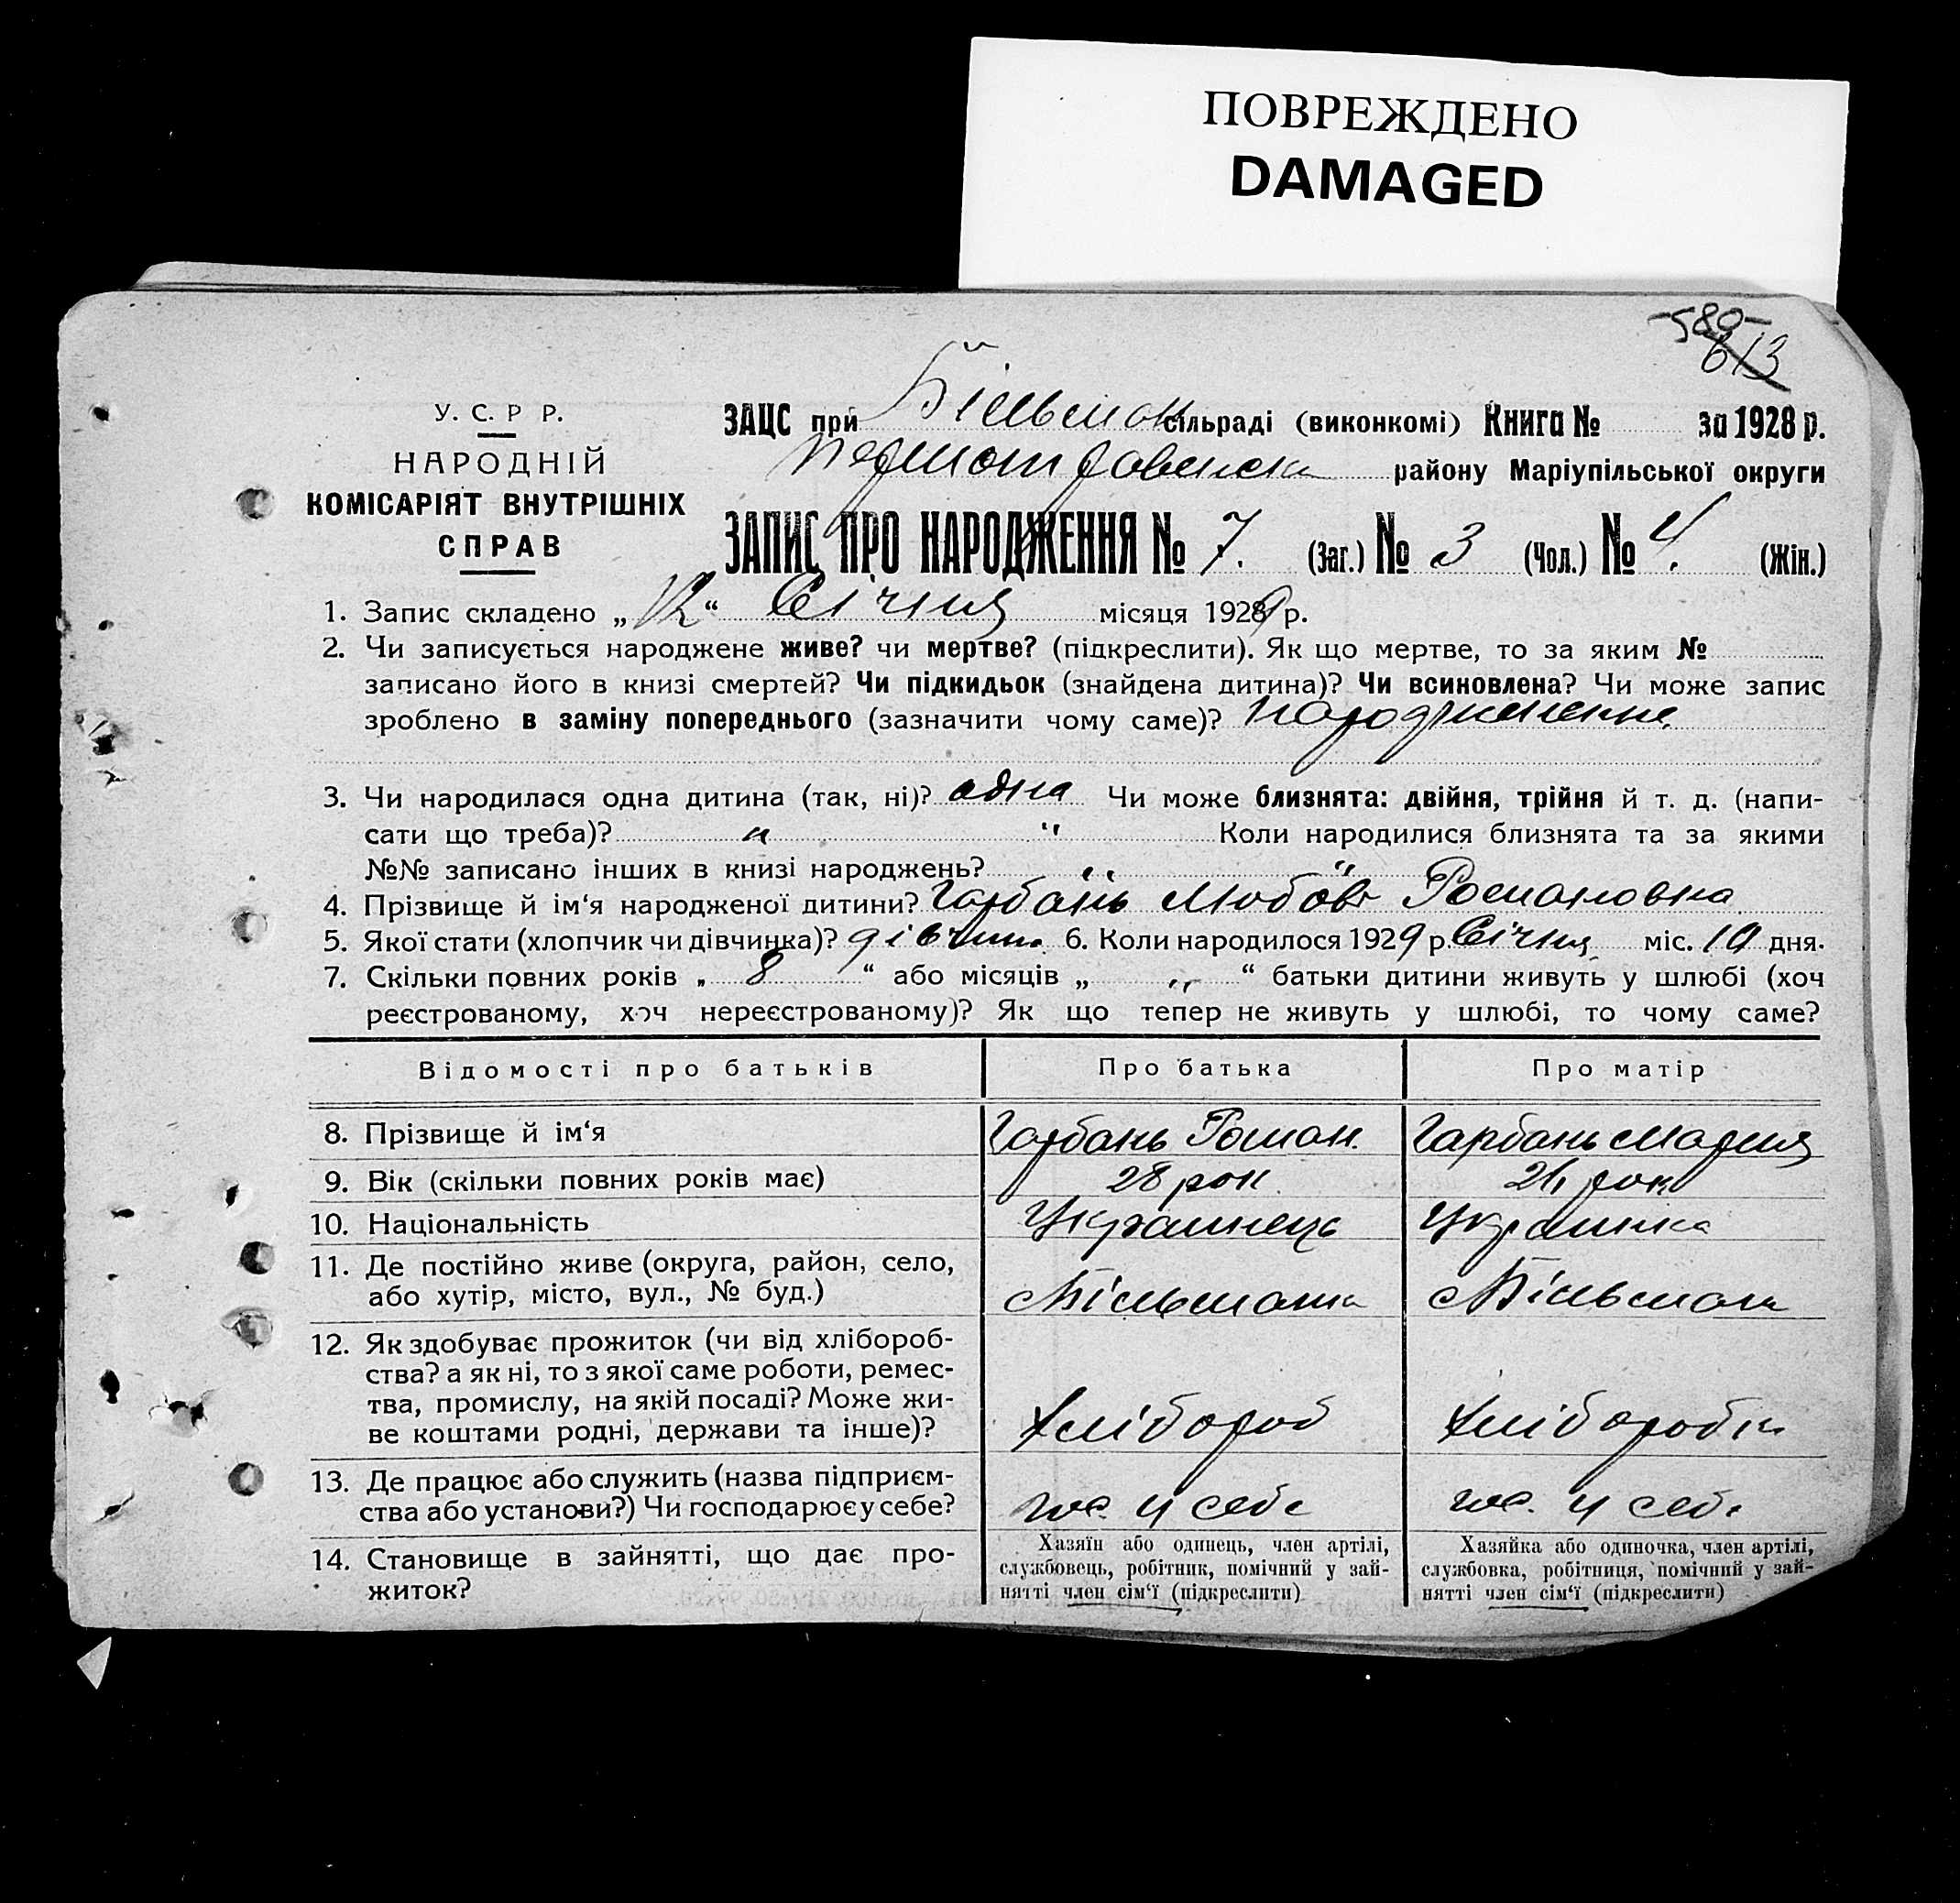 ПОВРЕЖДЕНО
DAMAGED
-580-
613
У. С. Р Р.
НАРОДНІЙ
КОМІСАРІЯТ ВНУТРІШНІХ
СПРАВ
ЗАЦС при Більман сільраді (виконкомі) Книга № за 1928 р.
району Маріупільської округи
ЗАПИС ПРО НАРОДЖЕННЯ № 7. (Заг.) № 3 (Чол.) № 4. (Жін.)
1. Запис складено „ 12 “ Січня місяця 1929 р.
2. Чи записується народжене живе? чи мертве? (підкреслити). Як що мертве, то за яким №
записано його в книзі смертей? Чи підкидьок (знайдена дитина)? Чи всиновлена? Чи може запис
зроблено в заміну попереднього (зазначити чому саме)?
3. Чи народилася одна дитина (так, ні)? одна Чи може близнята: двійня, трійня й т. д. (напи-
сати що треба)? „ „ Коли народилися близнята та за якими
№№ записано інших в книзі народжень? „ „
4. Прізвище й ім‘я народженої дитини? Гарбань Любовь Романовна
5. Якої стати (хлопчик чи дівчинка)? дівчин. 6. Коли народилося 1929 р. Січня міс. 10 дня.
7. Скільки повних років „ 8 “ або місяців „ „ “ батьки дитини живуть у шлюбі (хоч
реєстрованому, хоч нереєстрованому)? Як що тепер не живуть у шлюбі, то чому саме?
Відомості про батьків Про батька Про матір
8. Прізвище й ім‘я Гарбань Роман. Гарбань Мария
9. Вік (скільки повних років має) 28 рок рок
10. Національність Украинець Украинка
11. Де постійно живе (округа, район, село,
або хутір, місто, вул., № буд.) с Більманка с Більманк
12. Як здобуває прожиток (чи від хлібороб-
ства? а як ні, то з якої саме роботи, ремес-
тва, промислу, на якій посаді? Може жи-
ве коштами родні, держави та інше)? хлібороб хліборобка
13. Де працює або служить (назва підприєм-
ства або установи?) Чи господарює у себе? гос. у себе гос. у себе
14. Становище в зайнятті, що дає про-
житок?
Хазяїн або одинець, член артілі,
службовець, робітник, помічний у зай-
нятті член сім‘ї (підкреслити)
Хазяйка або одиночка, член артілі,
службовка, робітниця, помічний у зай-
нятті член сім‘ї (підкреслити)